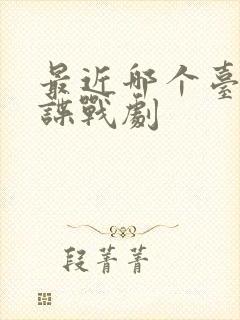 最近邮个臺
諜戰劇
段菁菁